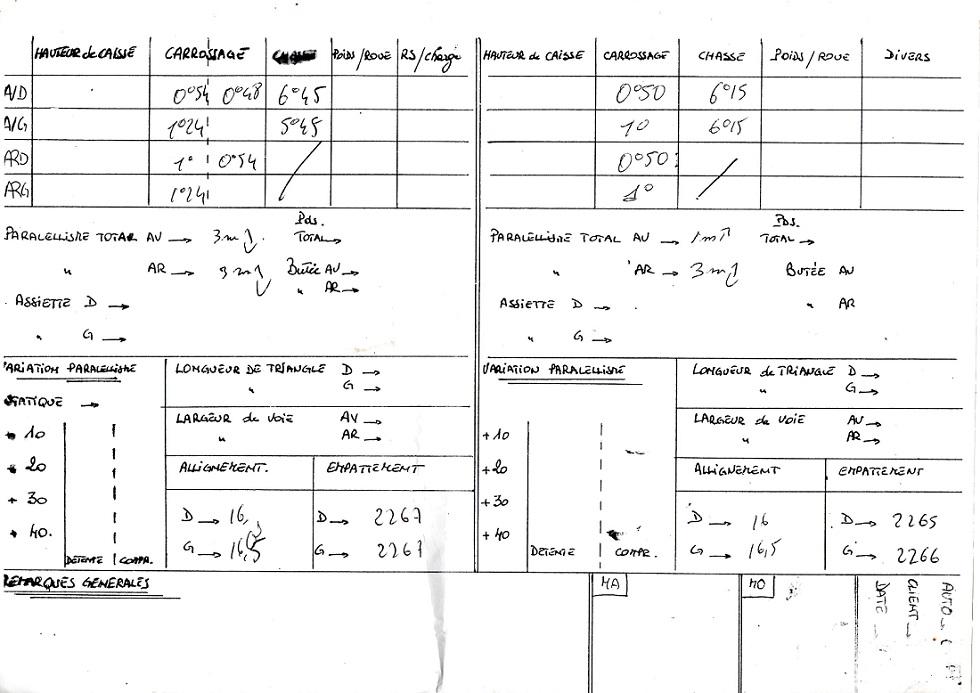 HAUTEUR de CAISSE CARROSSAGE CHASSE POIDS/ROUE RS/charge
A/D 0°54 0°48 6°45
A/G 1°24' 5°45
ARD 1° 0°54
ARG 1°24'
PARALELLISME TOTAL AV → 3m Pds. TOTAL →
" AR → 3m Butée AV →
" AR →
ASSIETTE D →
" G →
VARIATION PARALELLISME
STATIQUE →
+ 10
+ 20
+ 30
+ 40.
DETENTE COMPR.
LONGUEUR DE TRIANGLE D →
" G →
LARGEUR de VOIE AV →
" AR →
ALLIGNEMENT. EMPATTEMENT
D → 16, D → 2267
G → 16,5 G → 2267
HAUTEUR de CAISSE CARROSSAGE CHASSE POIDS/ROUE DIVERS
0°50 6°15
1° 6°15
0°50
1°
PARALELLISME TOTAL AV → 1m Pds. TOTAL →
" AR → 3m BUTÉE AV
ASSIETTE D → " AR
" G →
VARIATION PARALELLISME
+10
+20
+30
+40
DETENTE COMPR.
LONGUEUR de TRIANGLE D →
" G →
LARGEUR de VOIE AV →
" AR →
ALLIGNEMENT EMPATTEMENT
D → 16 D → 2265
G → 16,5 G → 2266
REMARQUES GENERALES
MA
MO
AUTO →
CLIENT →
DATE →